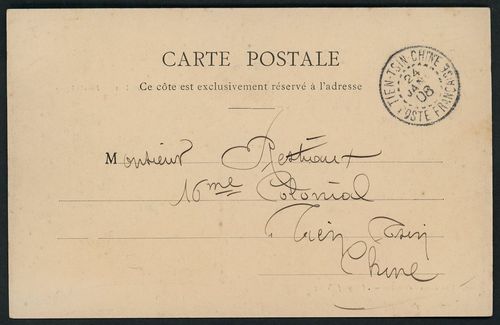 CARTE POSTALE
Ce côte est exclusivement réservé à l'adresse
TIEN-TSIN CHINE
24
JAN
08
POSTE FRANÇAISE
Monsieur Restiaux
16me Colonial
Tien Tsin
Chine